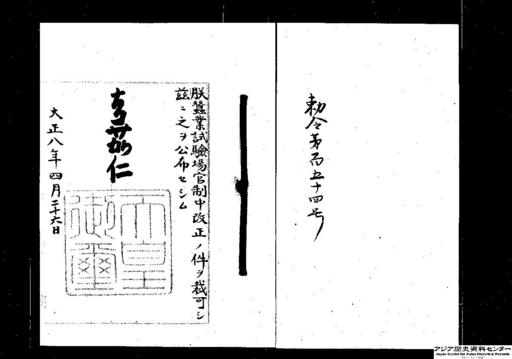 勅令第百五十四号
朕蠶業試驗場官制中改正ノ件ヲ裁可シ
茲ニ之ヲ公布セシム
嘉仁
天皇
御璽
大正八年四月二十六日
アジア歴史資料センター
Japan Center for Asian Historical Records